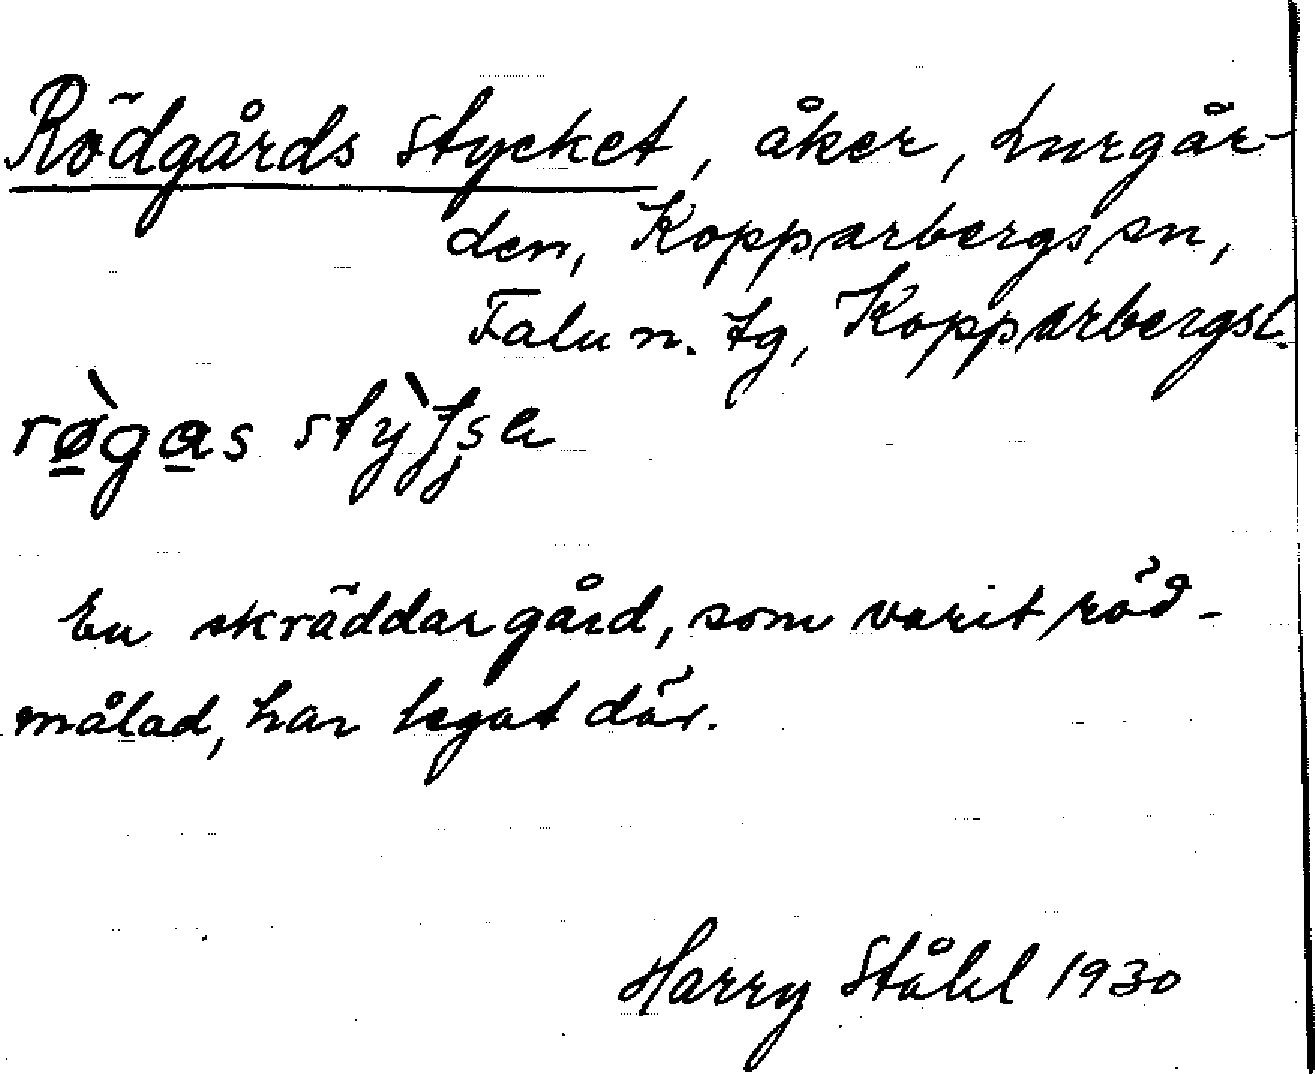 Rödgårds stycket, åker, Lurgår-
den, Kopparbergs sn,
Falu n. tg, Kopparbergs l.
En skräddargård, som varit röd-
målad, har legat där.
Harry Ståhl 1930